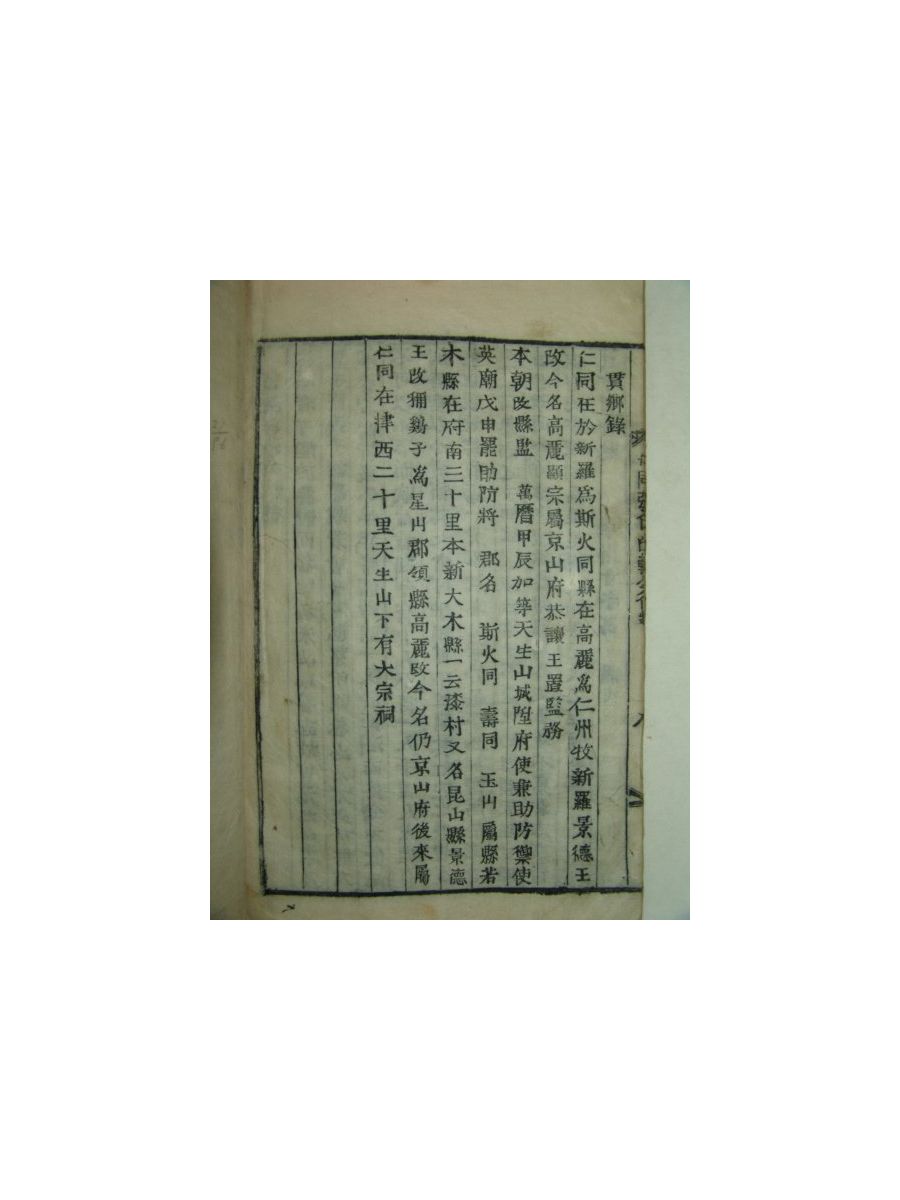 貫鄉錄
仁同在於新羅爲斯火同縣在高麗爲仁州牧新羅景德王
改今名高麗顯宗屬京山府恭讓王置監務
本朝改縣監 萬曆甲辰加築天生山城陞府使兼助防禦使
英廟戊申罷助防將 郡名 斯火同 壽同 玉山 屬縣若
木縣在府南三十里本新大木縣一云漆村又名昆山縣景德
王改狦鷄子爲星山郡領縣高麗改今名仍京山府後來屬
仁同在津西二十里天生山下有大宗祠